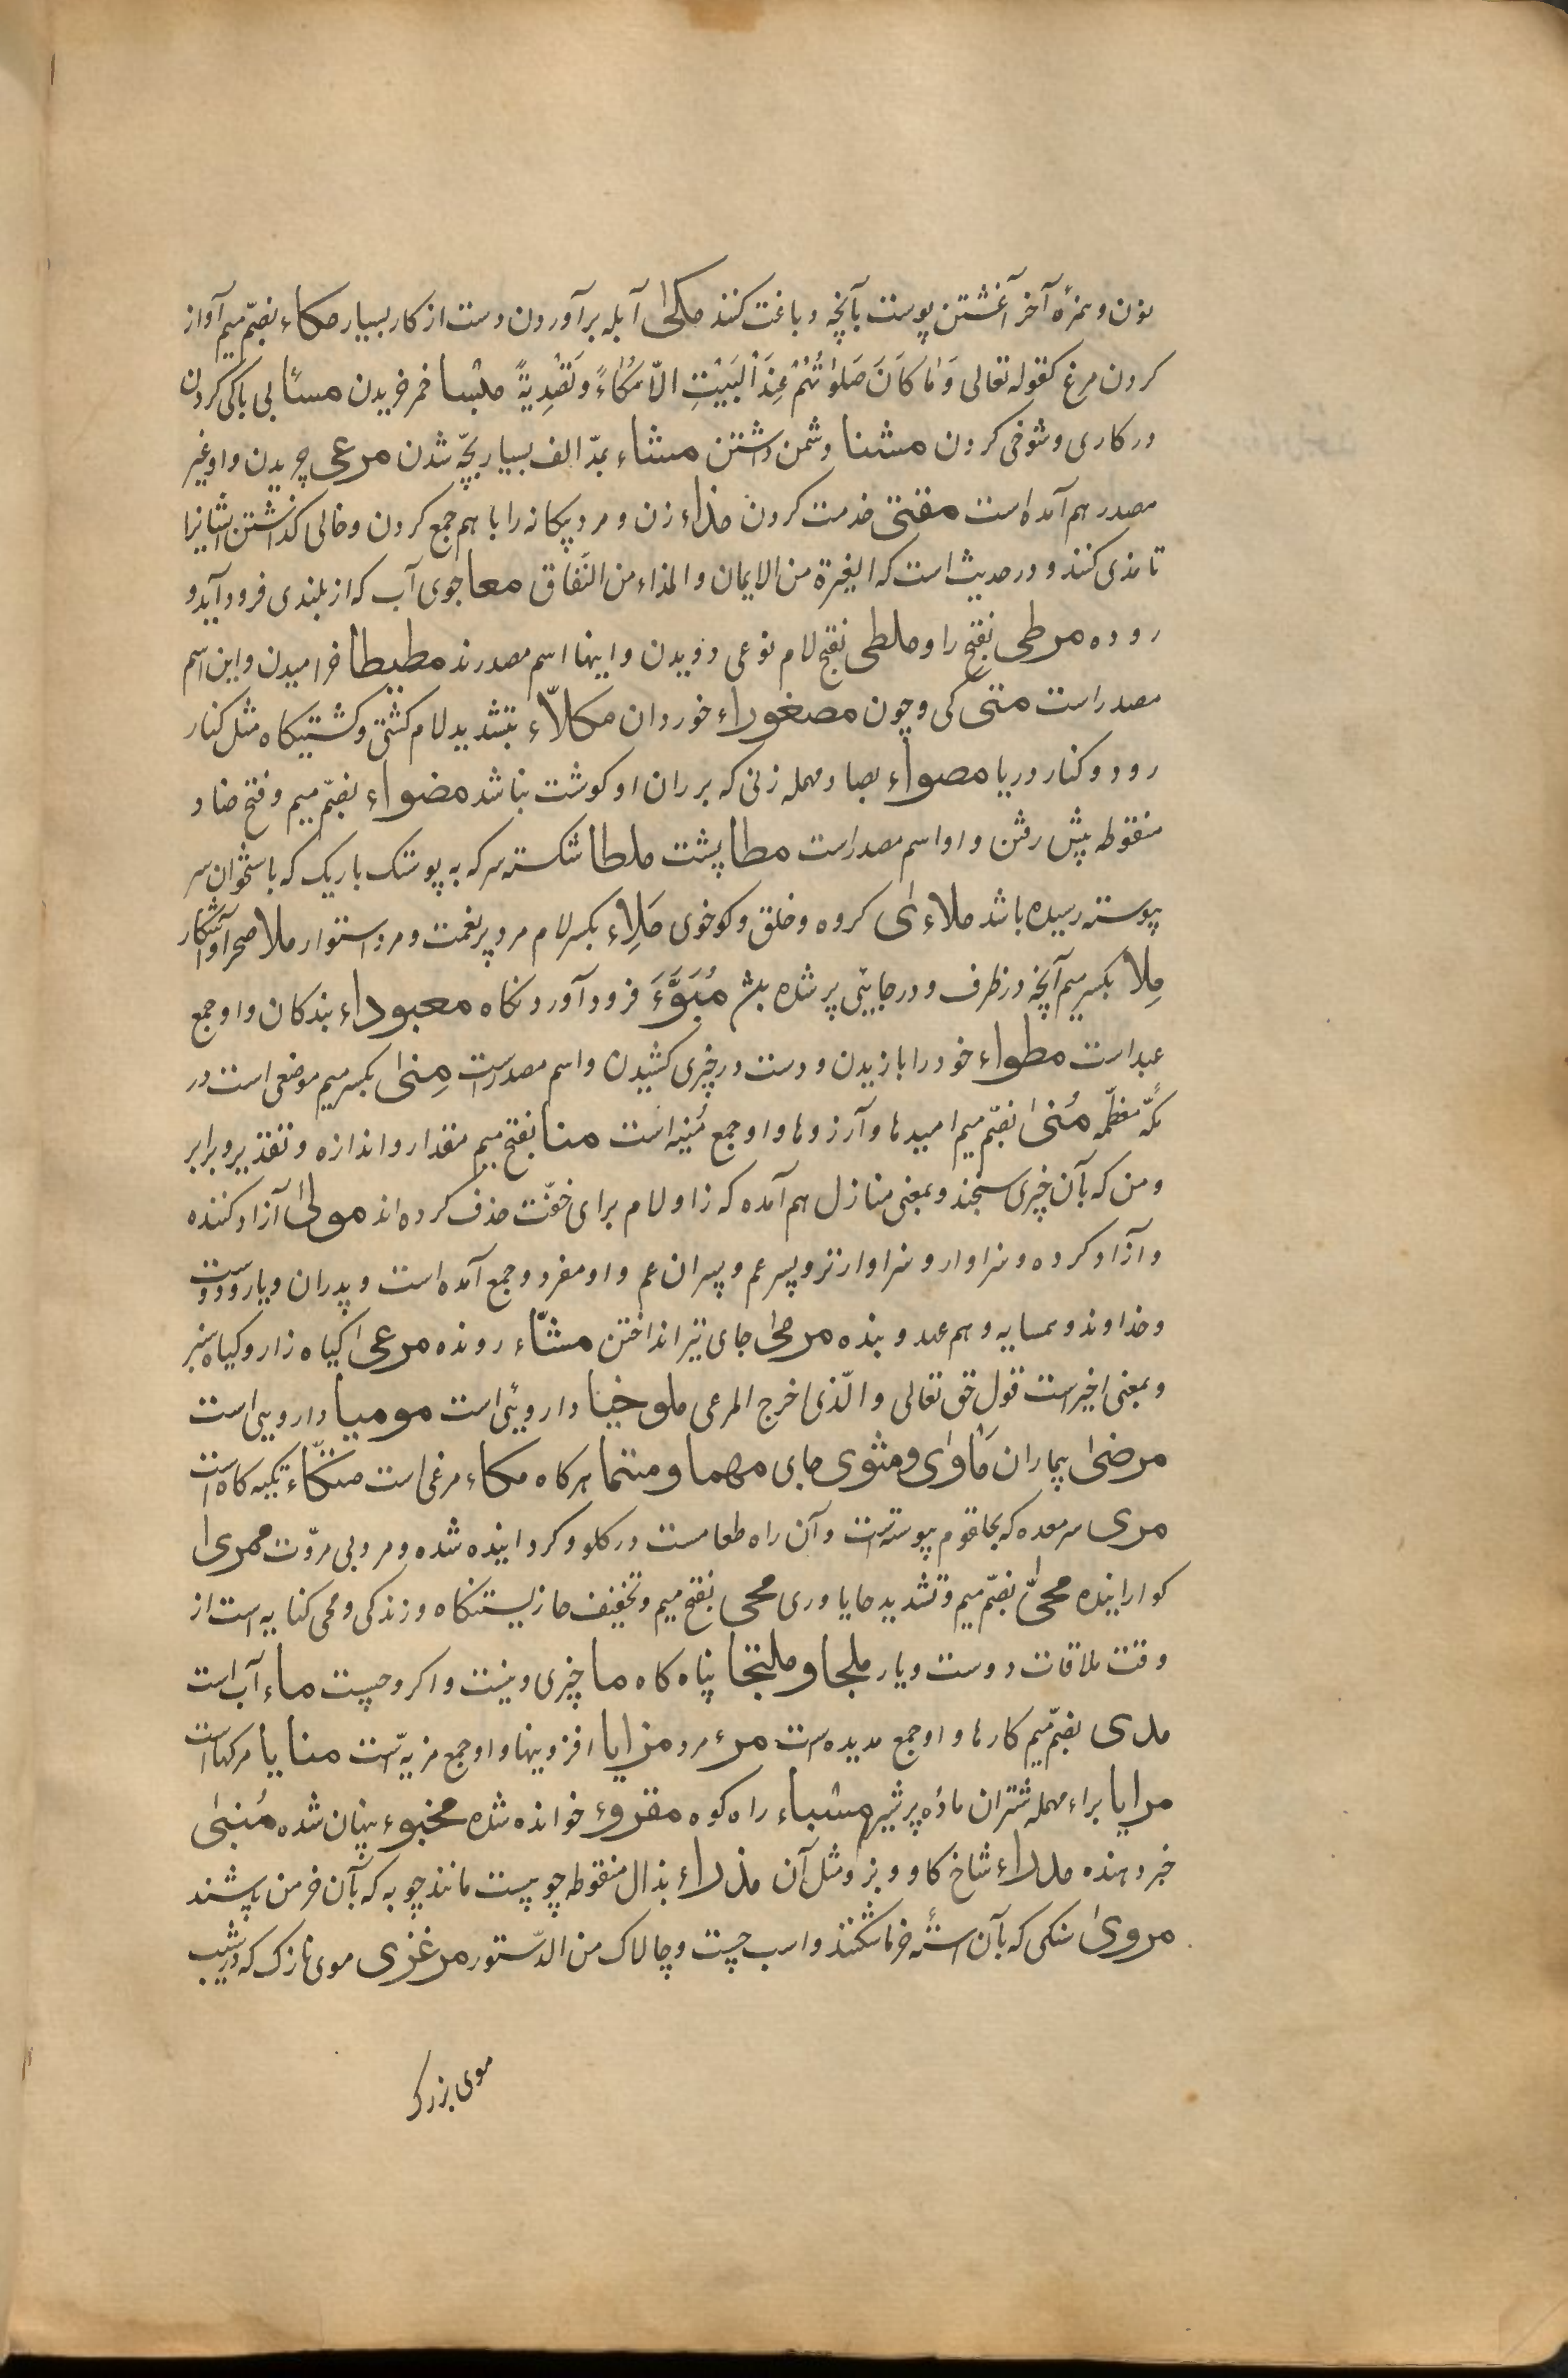 نون و همزهٔ آخر آغشتن پوست بآنچه دباغت کنند مکلی آبله برآوردن دست از کار بسیار مکاء بضمّ میم آواز
کردن مرغ کقوله تعالی وَمَا کَانَ صَلَوٰتُهُمْ عِنْدَ الْبَیْتِ اِلّا مُکَاءً وَتَصْدِیَةً ملبسا خمر خریدن مسئا بی باکی کردن
در کاری و شوخی کردن مشنا دشمن داشتن مشاء بمدّ الف بسیار بچّه شدن مرعی چریدن و او غیر
مصدر هم آمده است مقتی خدمت کردن مذاء زن و مرد بیکانه را با هم جمع کردن و خالی کذاشتن ایشانرا
تا مذی کنند و در حدیث است که الغیرة من الایمان و المذاء من النّفاق معا جوی آب که از بلندی فرود آید و
روده مرطی بفتح را و ملطی بفتح لام نوعی دویدن و اینها اسم مصدرند مطیطا خرامیدن و این اسم
مصدر است متی کی و چون مصغوراء خوردان مکلاّء بتشدید لام کشتی و کشتیکاه مثل کنار
رود و کنار دریا مصواء بصاد مهمله زنی که بر ران او کوشت نباشد مضواء بضمّ میم و فتح ضاد
منقوطه پیش رفتن و او اسم مصدر است مطا پشت ملطا شکسته سر که به پوستک باریک که با ستخوان سر
پیوسته رسیده باشد ملاء ای کروه و خلق و کو خوی مَلِاء بکسر لام مرد پر نعمت و مرد استوار ملا صحرا و آشکار
مِلا بکسر میم آنچه در ظرف و در جائی پر شده باشد مُبَوَّءَ فرود آوردنکاه معبوداء بندکان و او جمع
عبد است مطواء خود را بازیدن و دست در چیزی کشیدن و اسم مصدر است مِنیٰ بکسر میم موضعی است در
مکّه معظّمه مُنیٰ بضمّ میم امیدها و آرزوها و او جمع مُنیه است منا بفتح میم مقدار و اندازه و تقدیر و برابر
و من که بآن چیزی سنجند و بمعنی منازل هم آمده که زا و لام برای خفّت حذف کرده اند مولیٰ آزاد کننده
و آزاد کرده و سزاوار و سزاوارتر و پسر عم و پسران عم و او مفرد و جمع آمده است و پدران و یار و دوست
و خداوند و همسایه و هم عهد و بنده مرمیٰ جای تیر انداختن مشّاء رونده مرعیٰ کیاه زار و کیاه سبز
و بمعنی اخیر است قول حق تعالی و الّذی اخرج المرعی ملوخیا داروئی است مومیا دارویی است
مرضیٰ بیماران مَاْوٰی و مثوی جای مهما و متما هر کاه مکاء مرغی است متّکاء تکیه کاه است
مری سر معده که بحلقوم پیوسته است و آن راه طعامست در کلو و کردانیده شده و مرد بی مروّت ممری
کوارانیده محیّٰ بضمّ میم و تشدید حایا وری محی بفتح میم و تخفیف حا زیستنکاه و زندکی و محی کنایه است از
وقت ملاقات دوست و یار ملجا و ملتجا پناه کاه ما چیزی و نیست و اکر و چیست ماء آب است
مدی بضمّ میم کارها و او جمع مدیه است مرء مرد مزایا افزونیها و او جمع مزیه است منایا مرکها است
مرایا براء مهمله شتران ماده پر شیر مشباء راه کوه مقروء خوانده شده مخبوء پنهان شده مُنبیٰ
خبر دهنده مدراء شاخ کاو و بز و مثل آن مذراء بذال منقوطه چوبیست مانند چوبه که بآن خرمن پاشند
مرویٰ سنکی که بآن استهٔ خرما شکنند و اسب چست و چالاک من الدّستور مرغزی موی نازک که در شیب
موی بزرک